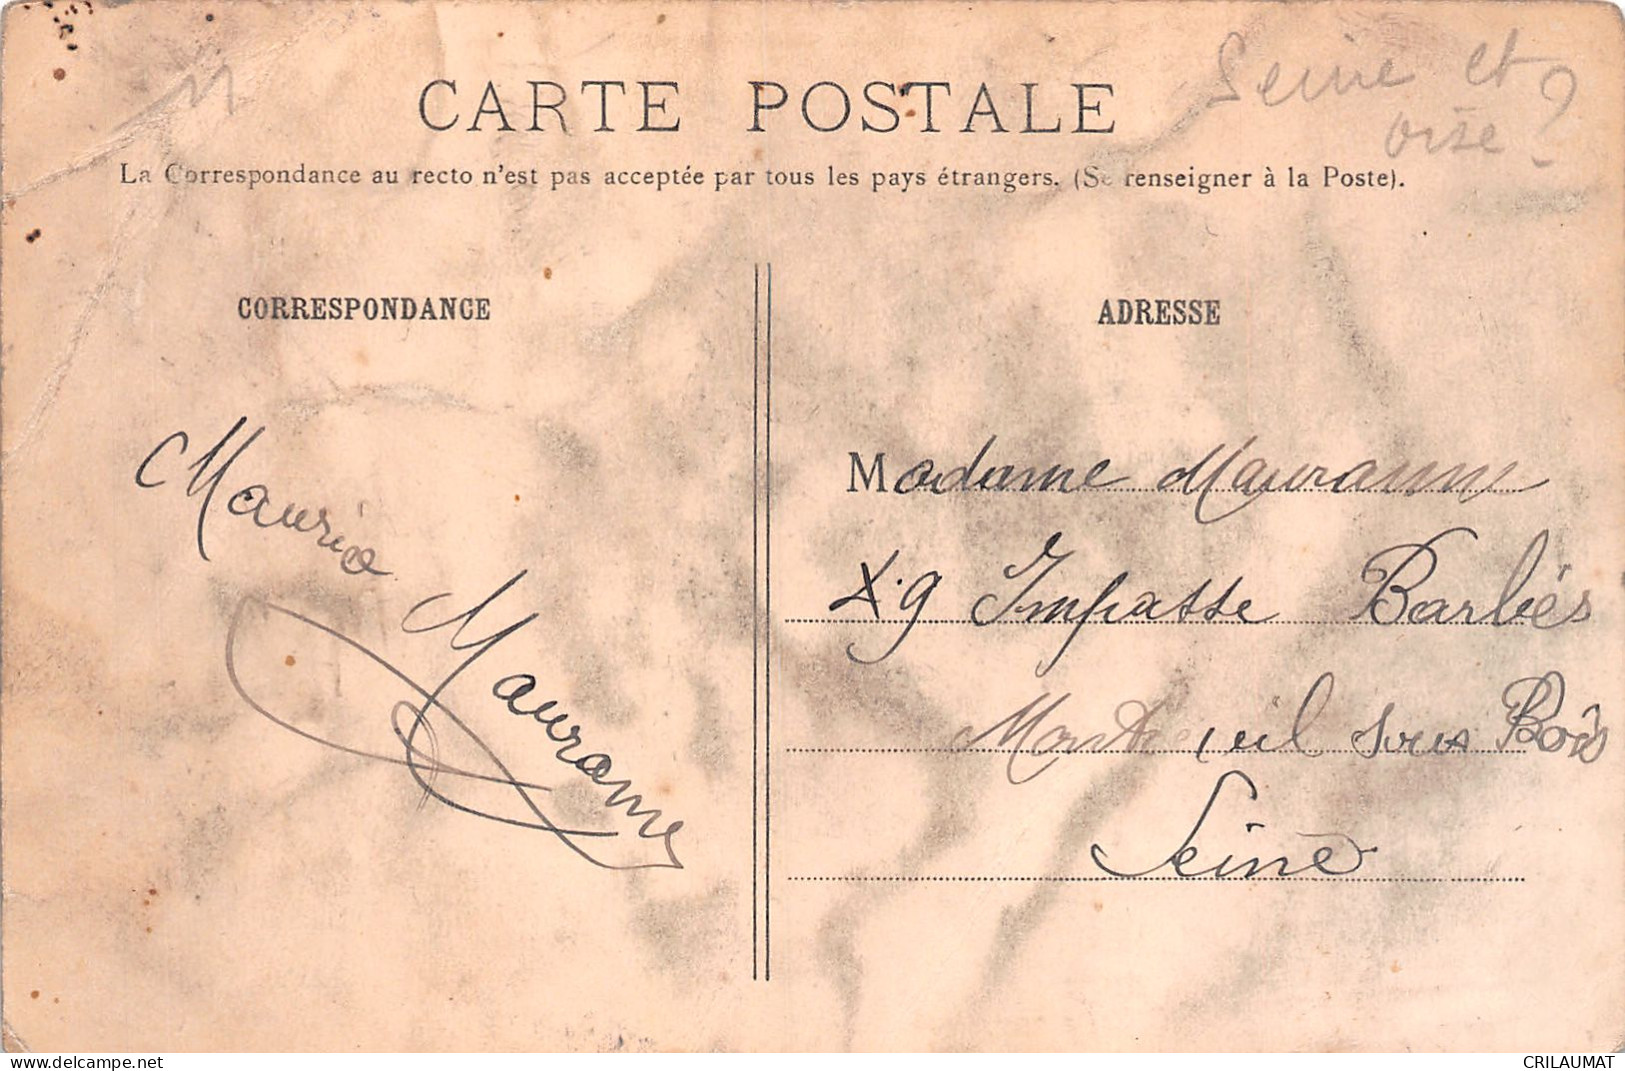 Seine et
oise ?
CARTE POSTALE
La Correspondance au recto n'est pas acceptée par tous les pays étrangers. (Se renseigner à la Poste).
CORRESPONDANCE
Maurice
Mauranne
ADRESSE
Madame Mauranne
19 Impasse Barbiés
Montreuil sous Bois
Seine
delcampe.net
CRILAUMAT